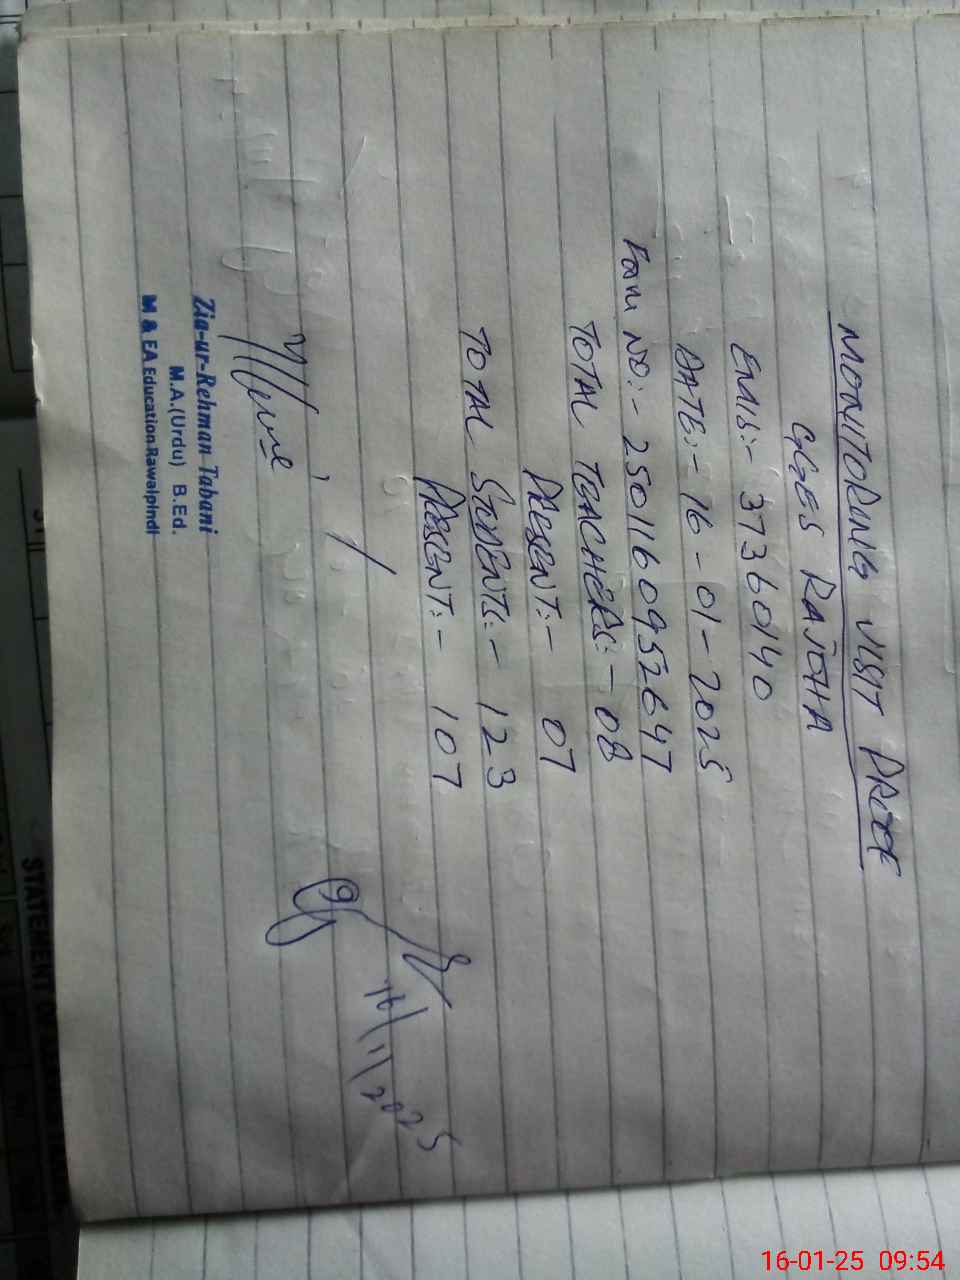 MONITORING VISIT PROOF
GGES RAJOHA
EMIS:- 37360140
DATE:- 16-01-2025
Form NO:- 2501160952647
TOTAL TEACHERS:- 08
PRESENT:- 07
TOTAL STUDENTS:- 123
PRESENT:- 107
16/1/2025
Zia-ur-Rehman Tabani
M.A.(Urdu) B.Ed.
M & EA Education Rawalpindi
STATEMENT
16-01-25 09:54